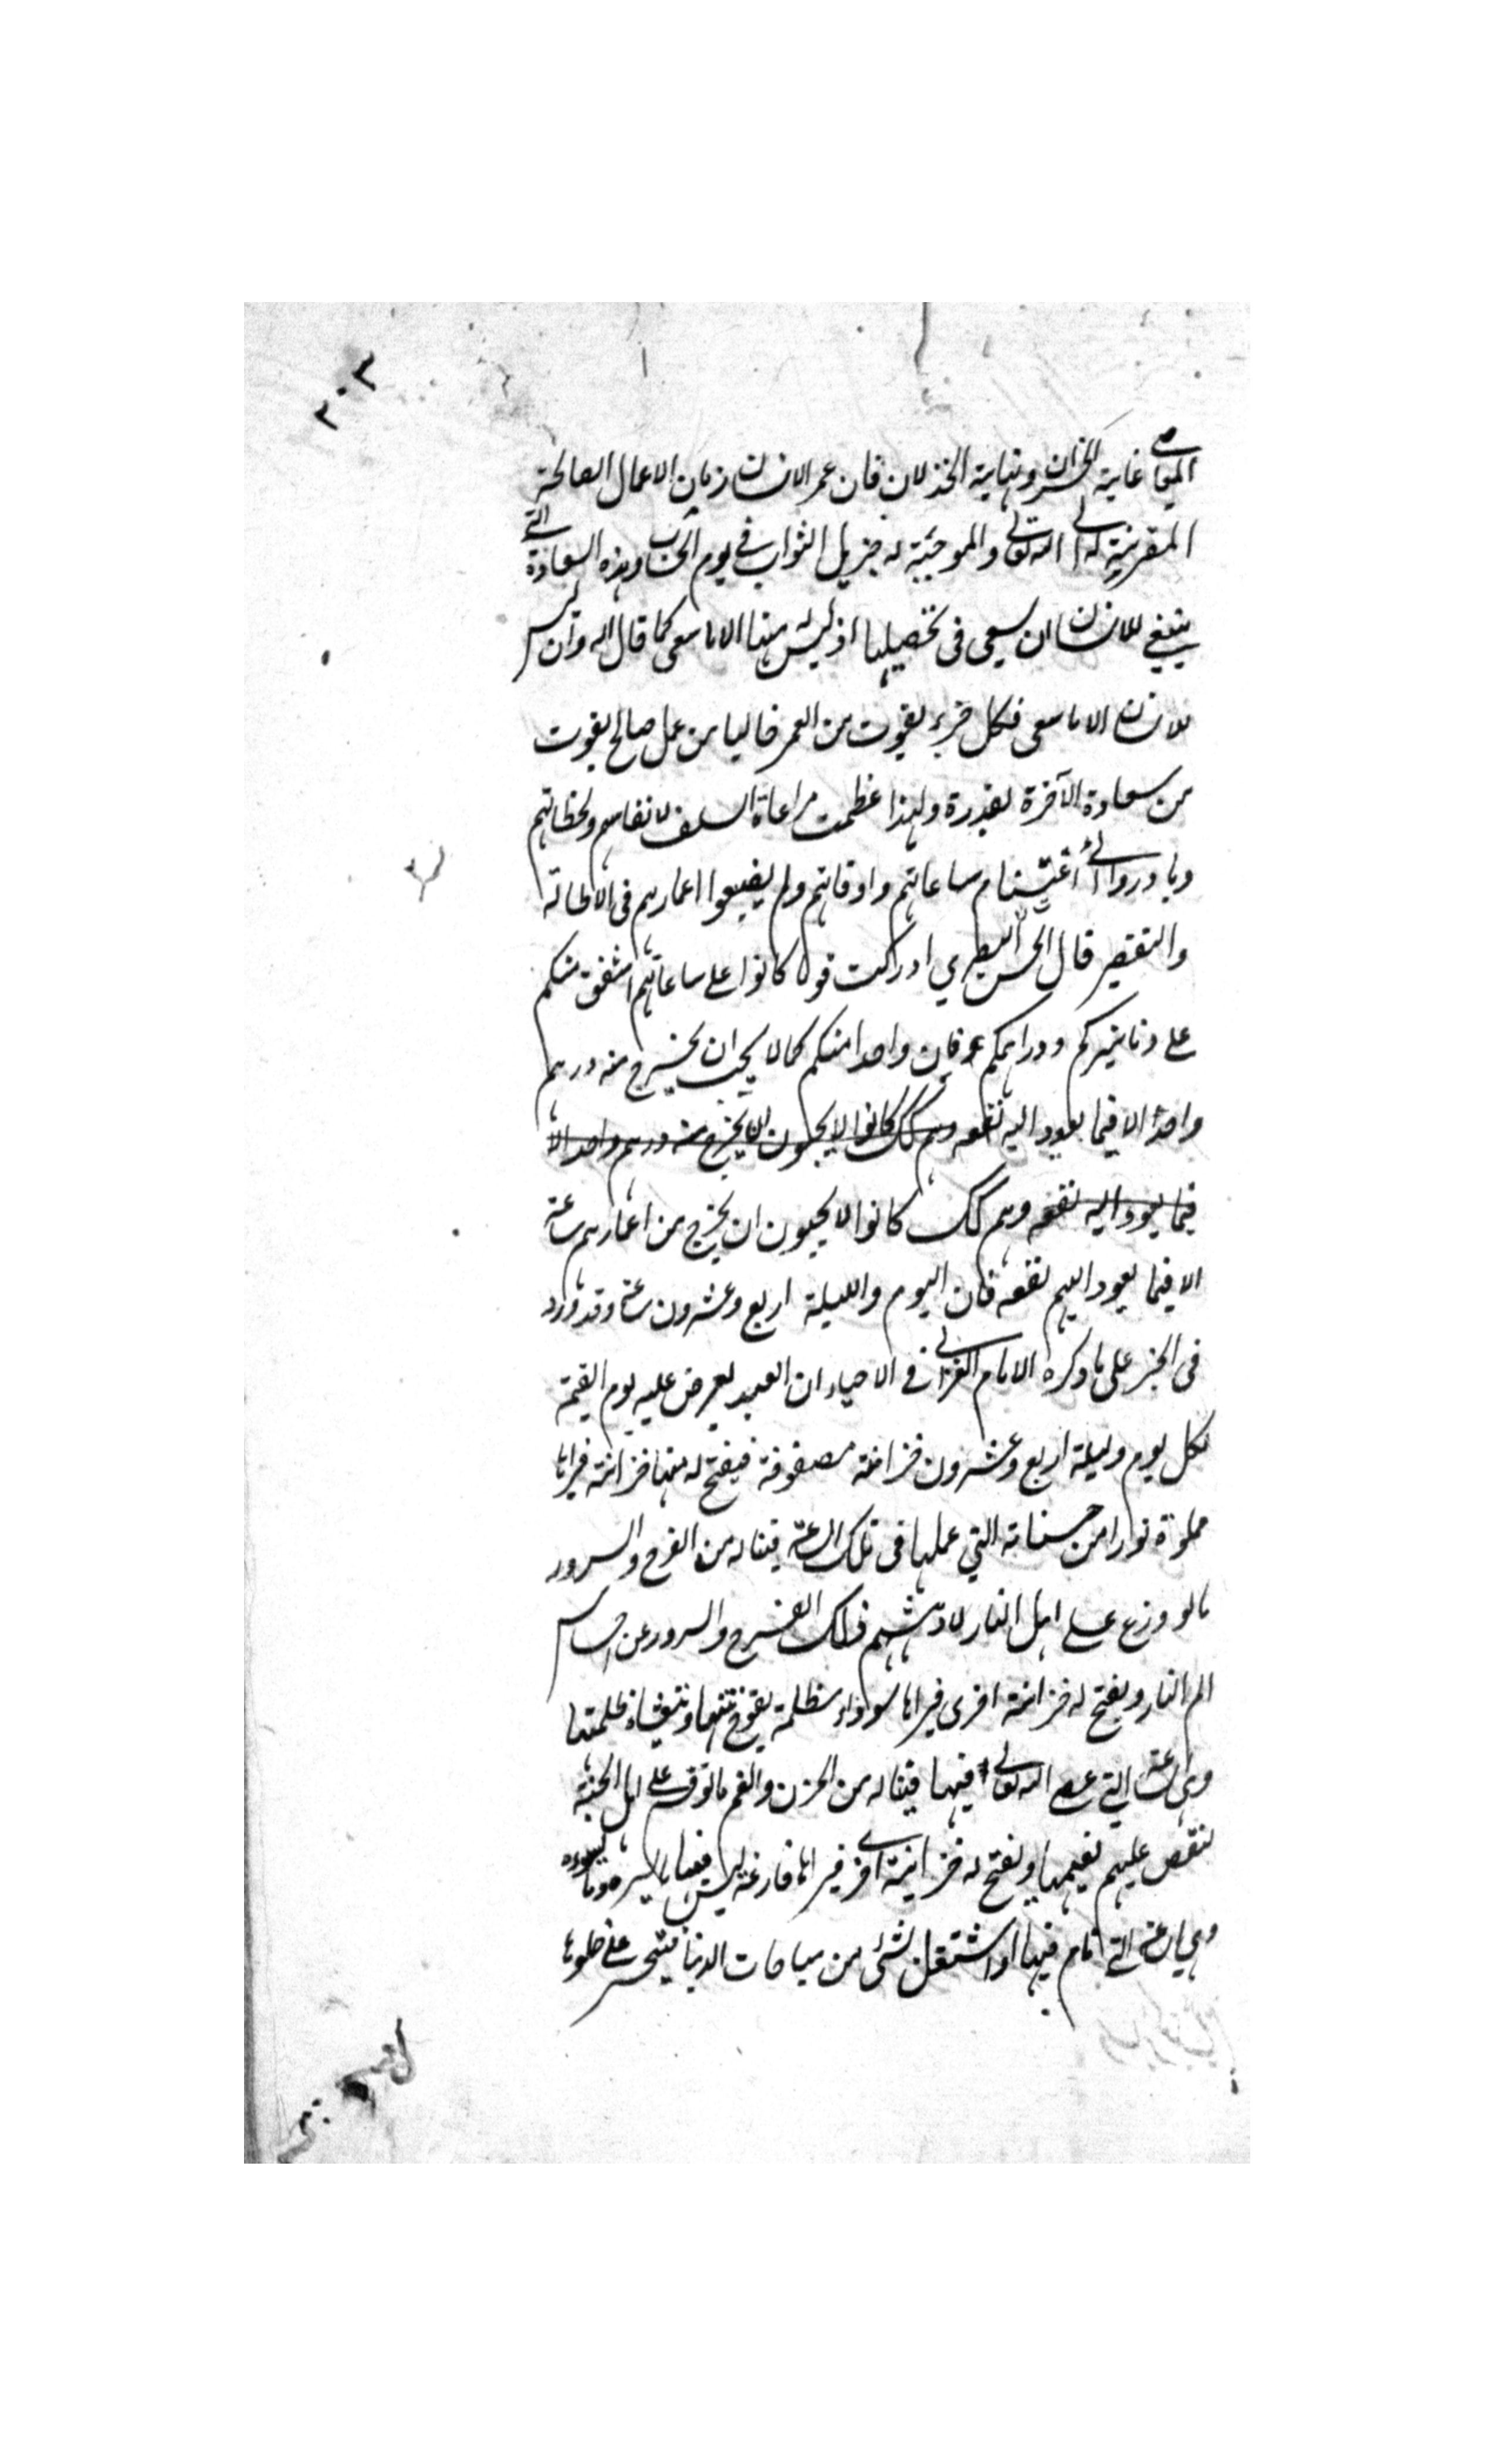 ٢٠٣
المعاصي غاية الخسران ونهاية الخذلان فان عمر الانسان زمان الاعمال الصالحة
المقربة له الى الله تعالى والموجبة له جزيل الثواب في يوم الحساب وهذه السعادة التي
ينبغي للانسان ان يسعى فى تحصيلها اذ ليس له منها الا ما سعى كما قال الله وان ليس
للانسان الا ما سعى فكل جزء يفوت من العمر خاليا من عمل صالح يفوت
من سعادة الآخرة بقدره ولهذا عظمت مراعاة السلف لانفاسهم ولحظاتهم
وبادروا الى اغتنام ساعاتهم واوقاتهم ولم يضيعوا اعمارهم فى البطالة
والتقصير قال الحسن البصري ادركت قوما كانوا على ساعاتهم اشفق منكم
على دنانيركم ودراهمكم فان واحدا منكم كما لا يحب ان يخرج منه درهم
واحد الا فيما يعود اليه نفعه وهم كك كانوا لا يحبون ان يخرج منه درهم واحد الا
فيما يعود اليه نفعه وهم كك كانوا لا يحبون ان يخرج من اعمارهم ساعة
الا فيما يعود اليهم نفعه فان اليوم والليلة اربع وعشرون ساعة وقد ورد
فى الخبر على ما ذكره الامام الغزالى في الاحياء ان العبد يعرض عليه يوم القيمة
لكل يوم وليلة اربع وعشرون خزانة مصفوفة فيفتح له منها خزانة فيراها
مملوة نورا من حسناته التي عملها فى تلك الساعة فيناله من الفرح والسرور
ما لو وزع على اهل النار لادهشهم ذلك الفرح والسرور عن احساس
الم النار ويفتح له خزانة اخرى فيراها سوداء مظلمة يفوح نتنها ويتغشاه ظلمتها
وهى الساعة التي عصى الله تعالى فيها فيناله من الحزن والغم ما لو فرق على اهل الجنة
لنقص عليهم نعيمها ويفتح له خزانة اخرى فيراها فارغة ليس فيها ما يسره وما يسوءه
وهي الساعة التي نام فيها او اشتغل بشئ من مباحات الدنيا فيتحسر على خلوها